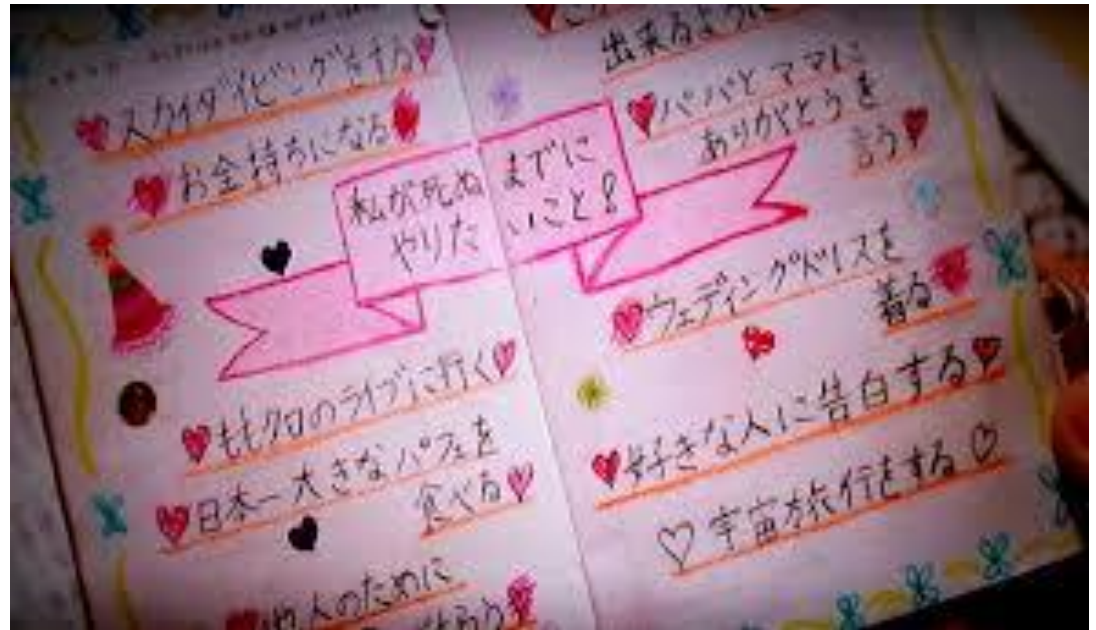 スカイダイビングをする
お金持ちになる
私が死ぬまでに
やりたいこと!
ももクロのライブに行く
日本一大きなパフェを
食べる
人のために
出来るように
パパとママに
ありがとうを
言う
ウェディングドレスを
着る
好きな人に告白する
宇宙旅行をする